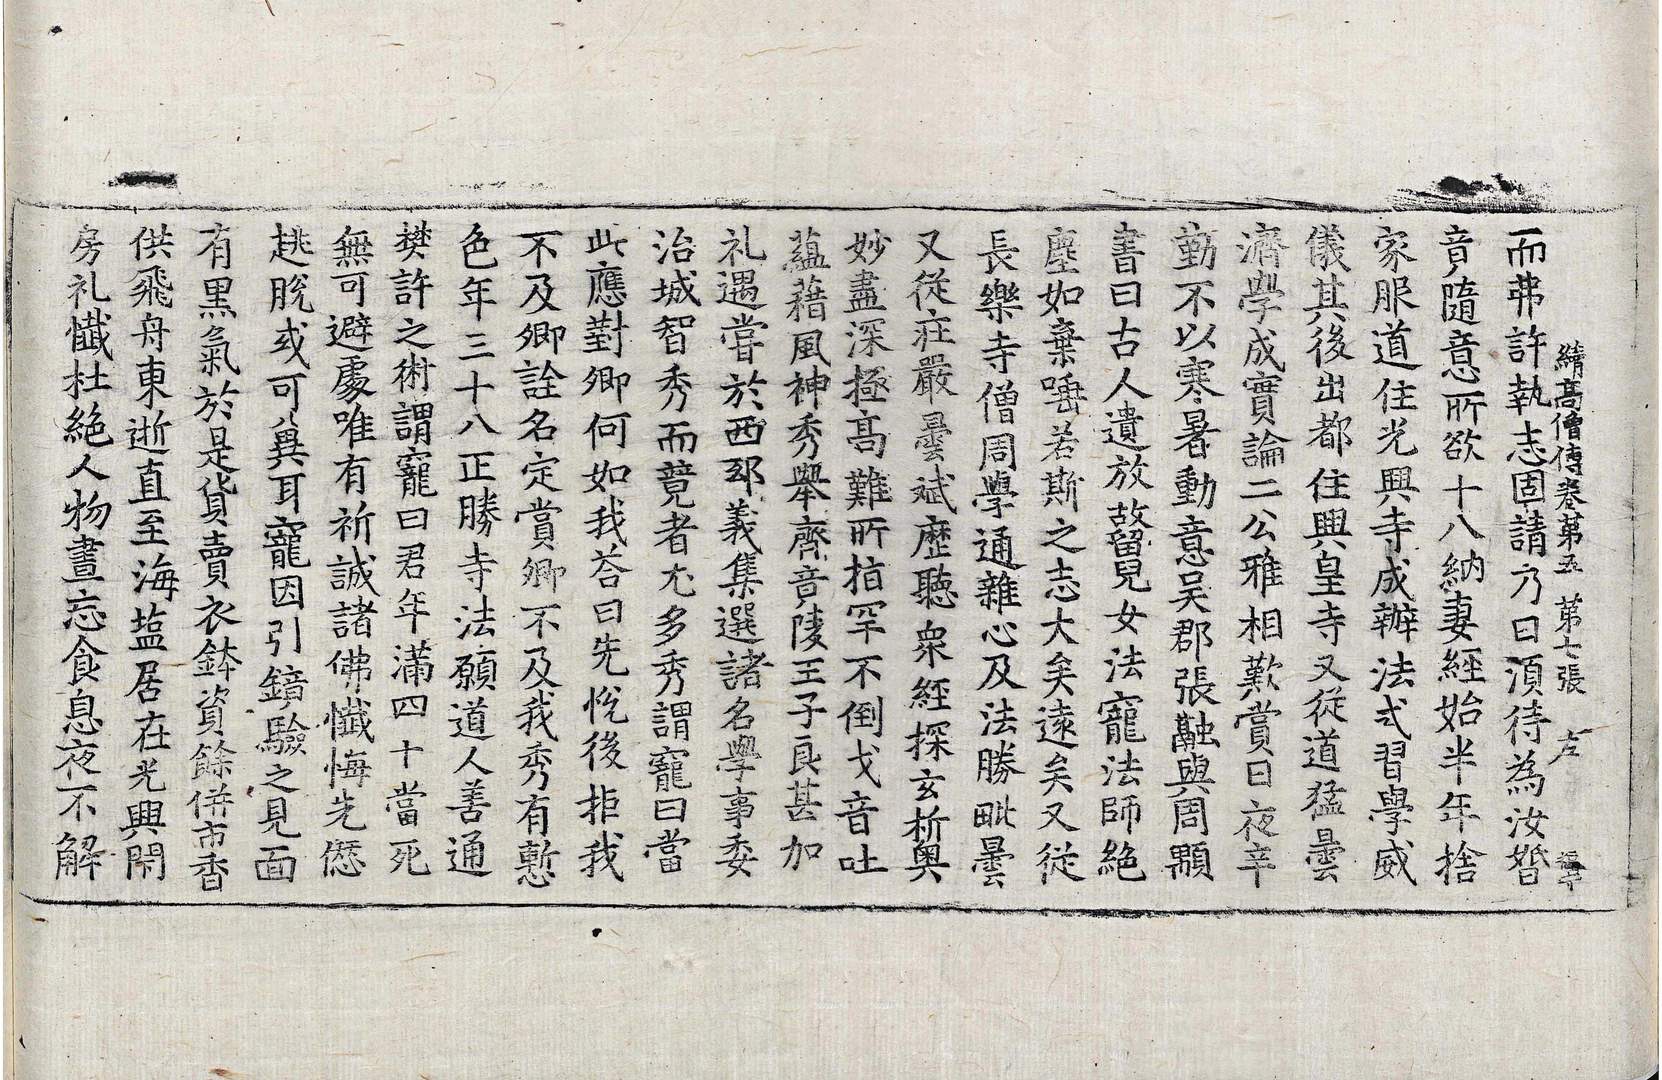 續高僧傳卷第五 第七張 左
而弗許執志固請乃曰須待為汝婚
竟隨意所欲十八納妻經始半年捨
家服道住光興寺成辦法式習學威
儀其後出都住興皇寺又從道猛曇
濟學成實論二公雅相歎賞日夜辛
勤不以寒暑動意吳郡張融與周顒
書曰古人遺放故留兒女法寵法師絕
塵如棄唾若斯之志大矣遠矣又從
長樂寺僧周學通雜心及法勝毗曇
又從莊嚴曇斌歷聽眾經探玄析奧
妙盡深極高難所指罕不倒戈音吐
蘊藉風神秀舉齊竟陵王子良甚加
礼遇嘗於西邸義集選諸名學事委
治城智秀而競者尤多秀謂寵曰當
此應對卿何如我荅曰先悅後拒我
不及卿詮名定賞卿不及我秀有慙
色年三十八正勝寺法願道人善通
樊許之術謂寵曰君年滿四十當死
無可避處唯有祈誠諸佛懺悔先愆
趒脫或可冀耳寵因引鏡驗之見面
有黑氣於是貨賣衣鉢資餘併市香
供飛舟東逝直至海塩居在光興閑
房礼懺杜絕人物晝忘食息夜不解